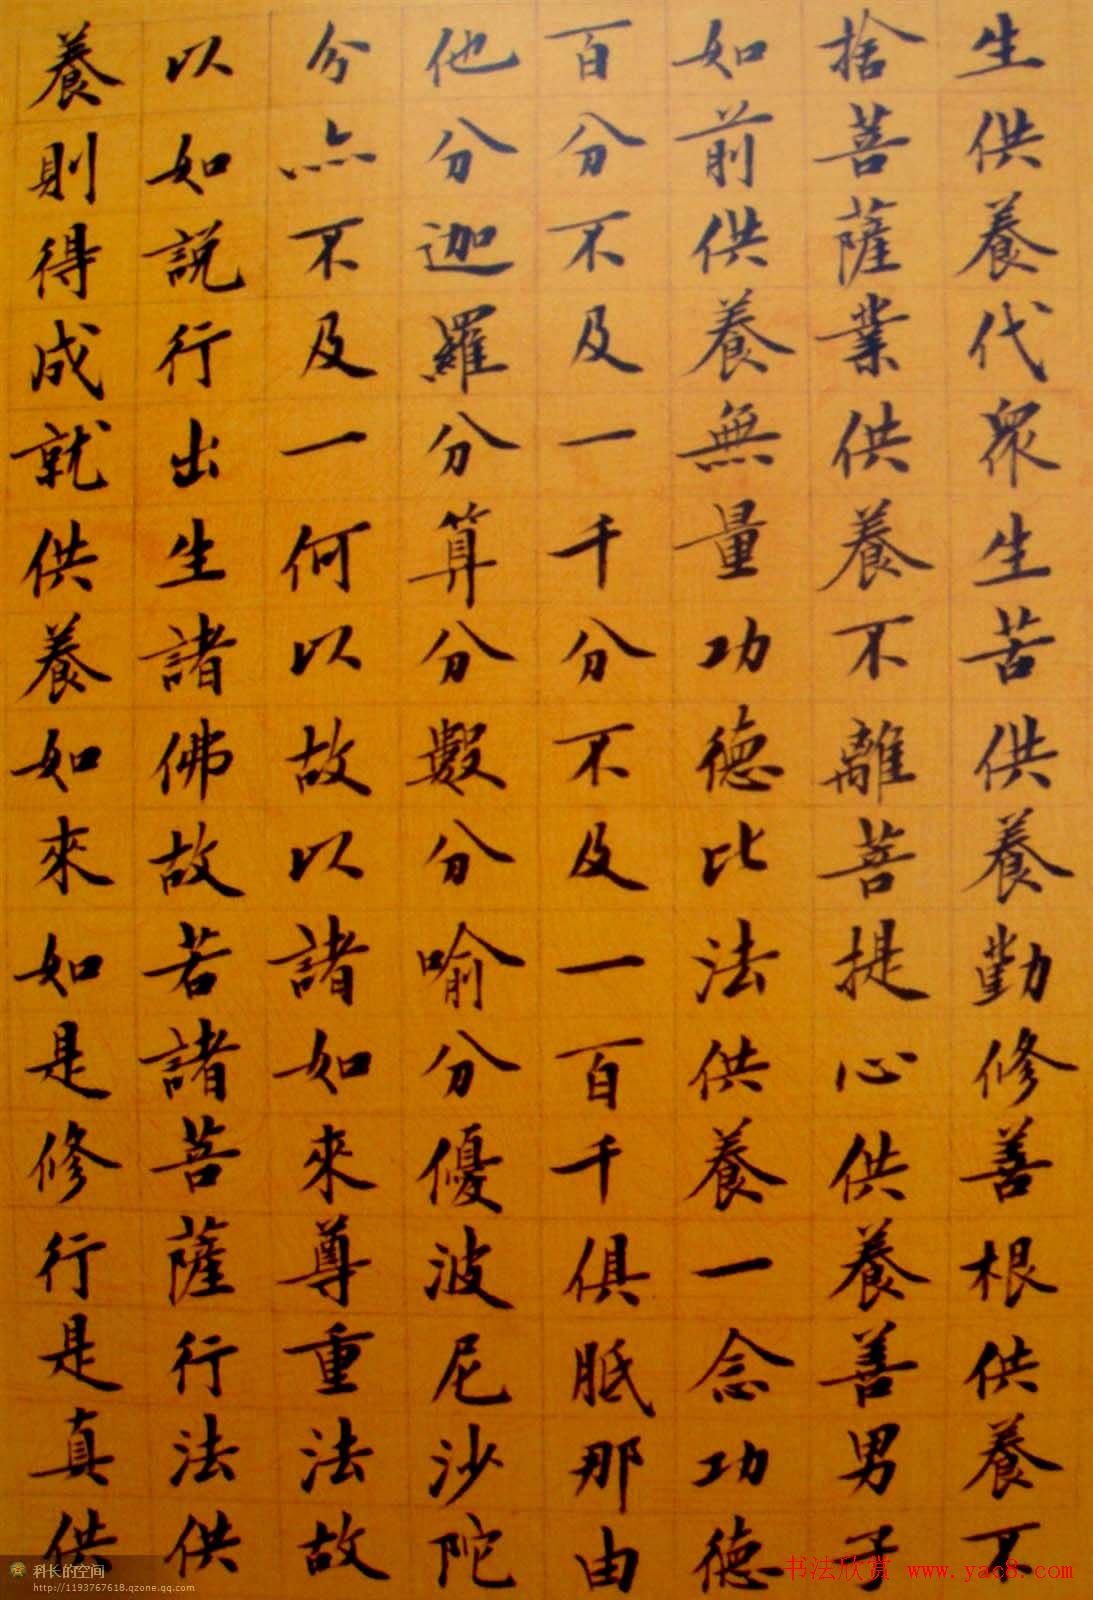 生供養代眾生苦供養勤修善根供養不
捨菩薩業供養不離菩提心供養善男子
如前供養無量功德比法供養一念功德
百分不及一千分不及一百千俱胝那由
他分迦羅分算分數分喻分優波尼沙陀
分亦不及一何以故以諸如來尊重法故
以如說行出生諸佛故若諸菩薩行法供
養則得成就供養如來如是修行是真供
科长的空间
http://1193767618.qzone.qq.com
书法欣赏 www.yac8.com